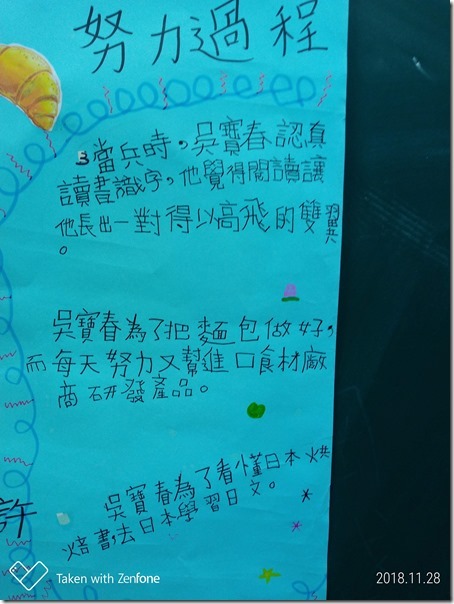 努力過程
3當兵時,吳寶春認真
讀書識字,他覺得閱讀讓
他長出一對得以高飛的雙翼
。
吳寶春為了把麵包做好,
而每天努力又幫進口食材廠
商研發產品。
吳寶春為了看懂日本烘
焙書,去日本學習日文。
許
Taken with Zenfone
2018.11.28